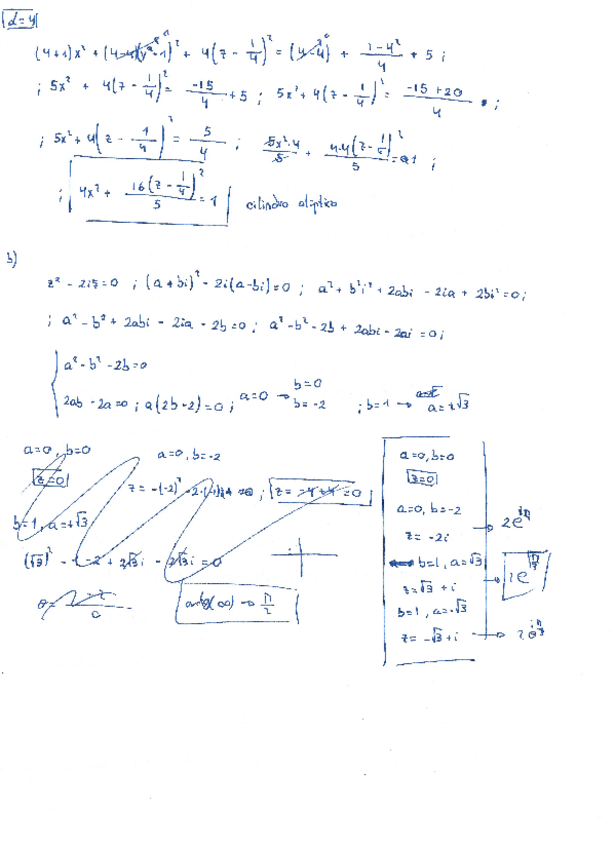 α=4
(4+1)x² + (4-4)(y-1)² + 4(z - 1/4)² = (4-4) + (1-4²)/4 + 5 ;
; 5x² + 4(z - 1/4)² = -15/4 + 5 ; 5x² + 4(z - 1/4)² = (-15+20)/4 ;
; 5x² + 4(z - 1/4)² = 5/4 ; 5x²·4/5 + 4·4(z - 1/4)²/5 = 1 ;
; 4x² + 16(z - 1/4)²/5 = 1 cilindro elíptico
b)
z² - 2iz̄ = 0 ; (a+bi)² - 2i(a-bi) = 0 ; a² + b²i² + 2abi - 2ia + 2bi² = 0 ;
; a² - b² + 2abi - 2ia - 2b = 0 ; a² - b² - 2b + 2abi - 2ai = 0 ;
a² - b² - 2b = 0
2ab - 2a = 0 ; a(2b-2) = 0 ; a=0 → b=0 b=-2 ; b=1 → a=±√3
a=0, b=0
z=0
a=0, b=-2
b=1, a=+√3
(√3)² - 1 - 2 + 2√3i - 2√3i = 0
arctg(∞) → π/2
a=0, b=0
z=0
a=0, b=-2
z = -2i
b=1, a=√3
z=√3 + i
b=1, a=-√3
z = -√3 + i